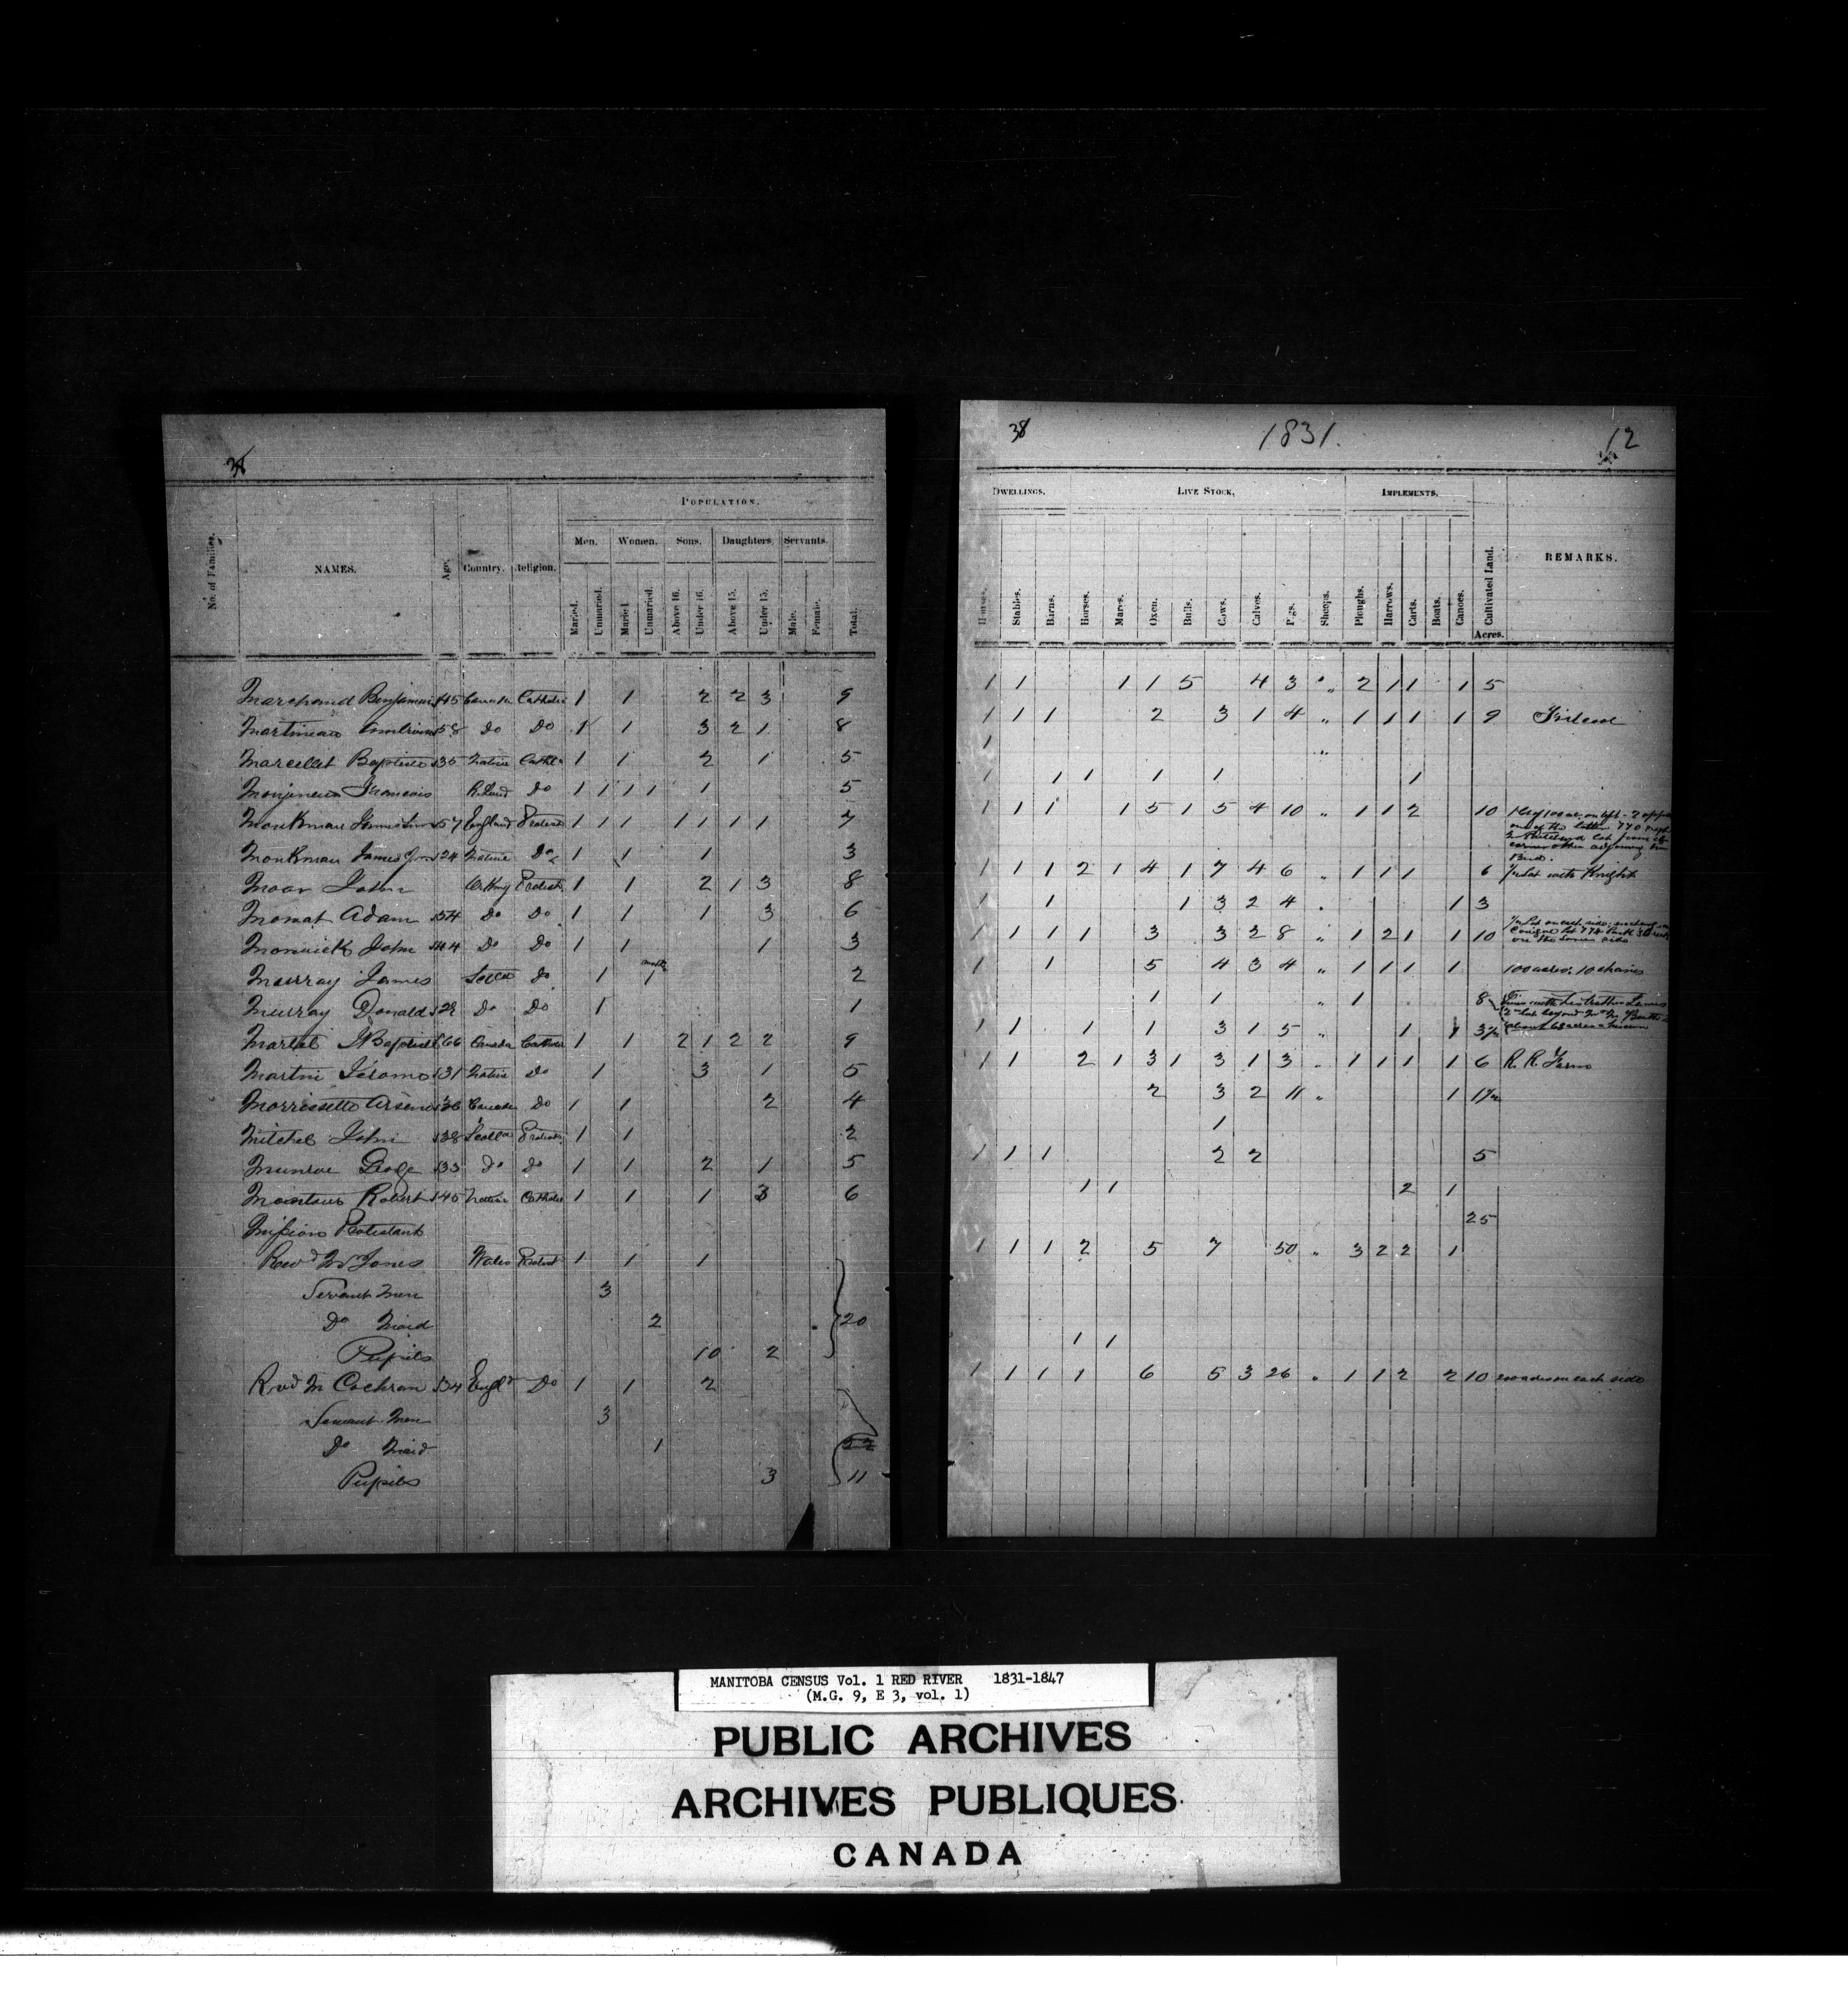 38
POPULATION.
Men. Women. Sons. Daughters. Servants.
No. of Families. NAMES. Age. Country. Religion. Married. Unmarried. Married. Unmarried. Above 16. Under 16. Above 15. Under 15. Male. Female. Total.
Marchand Benjamin 45 Canada Catholic 1 1 2 2 3 9
Martineau 58 Do Do 1 1 3 2 1 8
Marcellet Baptiste 35 Native Cathc 1 1 2 1 5
Monjeneau Francois R. Land Do 1 1 1 1 1 5
Monkman James Senr 57 England Protest 1 1 1 1 1 1 1 7
Monkman James Jnr 24 Native Do 1 1 1 3
Moar John Orkney Protest 1 1 2 1 3 8
Mowat Adam 54 Do Do 1 1 1 3 6
Morwick John 44 Do Do 1 1 1 3
Murray James Scotd Do 1 mother 1 2
Murray Donald 29 Do Do 1 1
Martel JBaptiste 66 Canada Catholic 1 1 2 1 2 2 9
Martin Jerome 31 Native Do 1 3 1 5
Morrissette Arsene 36 Canada Do 1 1 2 4
Mitchel John 38 Scotld Protest 1 1 2
Munroe George 33 Do Do 1 1 2 1 5
Montour Robert 45 Native Catholic 1 1 1 3 6
Mission Protestant
Revd Mr Jones Wales Protest 1 1 1
Servant Men 3
Do Maid 2 20
Pupils 10 2
Revd Mr Cochran 34 Engld Do 1 1 2
Servant Men 3
Do Maid 1 22
Pupils 3 11
38 1831. 12
DWELLINGS. LIVE STOCK. IMPLEMENTS.
Houses. Stables. Barns. Horses. Mares. Oxen. Bulls. Cows. Calves. Pigs. Sheeps. Ploughs. Harrows. Carts. Boats. Canoes. Cultivated Land. REMARKS.
Acres.
1 1 1 1 5 4 3 " 2 1 1 1 5
1 1 1 2 3 1 4 " 1 1 1 1 9
1 "
1 1 1 1 1 1
1 1 1 1 5 1 5 4 10 " 1 1 2 10
1 1 1 2 1 4 1 7 4 6 " 1 1 1 6 ½ Lot with Knight
1 1 1 3 2 4 " 1 3
1 1 1 1 3 3 2 8 " 1 2 1 1 10 on the same side
1 1 5 4 3 4 " 1 1 1 1 100 acres. 10 chains
1 1 " 1 8 with his brother James
1 1 1 1 3 1 5 " 1 1 3½
1 1 2 1 3 1 3 1 3 " 1 1 1 1 6 R. R.
2 3 2 11 " 1 1½
1
1 1 1 2 2 5
1 1 2 1
25
1 1 1 2 5 7 50 " 3 2 2 1
1 1
1 1 1 1 6 5 3 26 " 1 1 2 2 10 200 acres on each side
MANITOBA CENSUS Vol. 1 RED RIVER 1831-1847
(M.G. 9, E 3, vol. 1)
PUBLIC ARCHIVES
ARCHIVES PUBLIQUES
CANADA